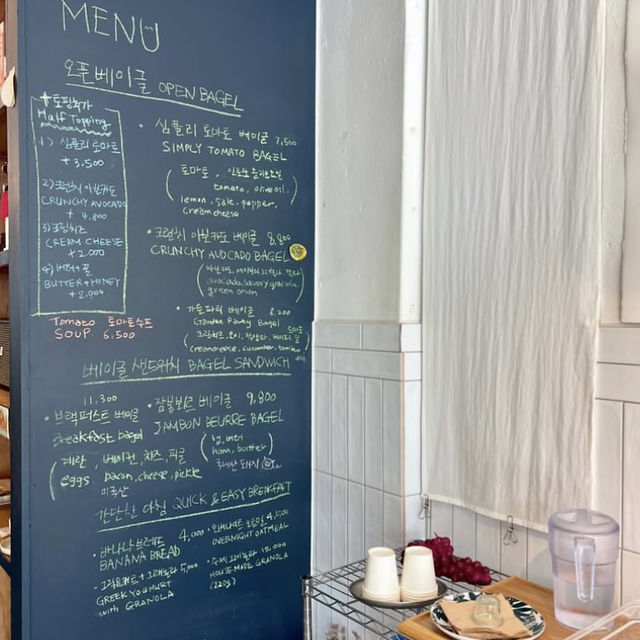 MENU
오픈베이글 OPEN BAGEL
+토핑추가
Half Topping
1) 심플리 토마토
+ 3,500
2) 크런치 아보카도
CRUNCHY AVOCADO
+ 4,800
3) 크림치즈
CREAM CHEESE
+2,000
4) 버터+꿀
BUTTER+HONEY
+2,000
Tomato 토마토수프
SOUP 6,500
• 심플리 토마토 베이글 7,500
SIMPLY TOMATO BAGEL
토마토,
tomato, olive oil,
lemon, sale, pepper,
creamcheese
• 크런치 아보카도 베이글 8,800
CRUNCHY AVOCADO BAGEL
아보카도,
avocado, savory granola,
green onion
• 가든파티 베이글 8,200
Garden Party Bagel
크림치즈, 오이,
creamcheese, cucumber, tomato
베이글 샌드위치 BAGEL SANDWICH
11,300
• 브랙퍼스트 베이글
Breakfast bagel
계란, 베이컨, 치즈, 피클
eggs bacon, cheese, pickle
미국산
• 잠봉뵈르 베이글 9,800
JAMBON BEURRE BAGEL
햄, 버터
ham, butter
국내산 돼지
간단한 아침 QUICK & EASY BREAKFAST
• 바나나브레드 4,000
BANANA BREAD
• 그릭요거트+그래놀라 5,000
GREEK YOGHURT
with GRANOLA
• 오버나이트 오트밀 4,500
OVERNIGHT OATMEAL
• 수제그래놀라 15,000
HOUSE MADE GRANOLA